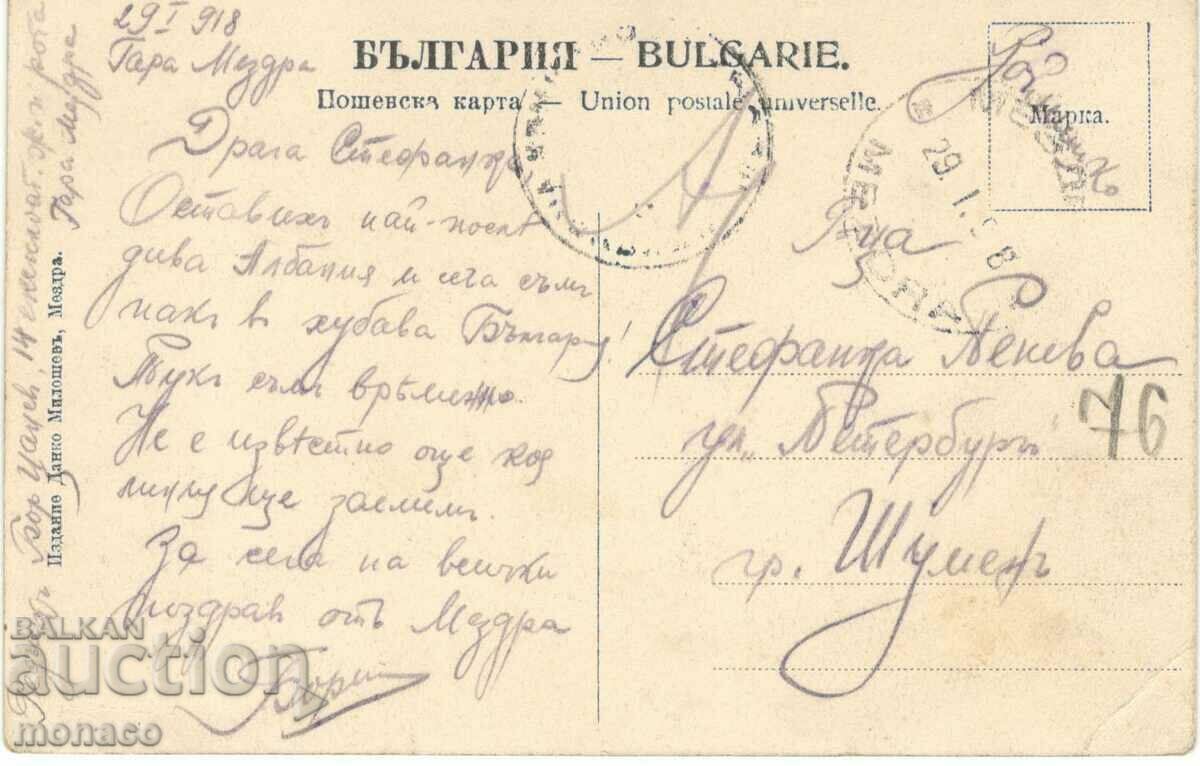 29 I 918
Гара Мездра
БЪЛГАРИЯ — BULGARIE.
Пошенска карта — Union postale universelle.
Марка.
Драга Стефанка
Оставихъ най-после
дива Албания и сега съмъ
пакъ в хубава България!
Тукъ съмъ врѣменно.
Не е извѣстно още коя
линия ще заемемъ.
За сега на всички
поздрав отъ Мездра
Борис
Г-ца
Стефанка Пенева
ул. „Петербургъ“
76
гр. Шуменъ
MEZDRA
29.I.
Гара Мездра
Издание Данко Милошевъ, Мездра.
BALKAN
auction
monaco